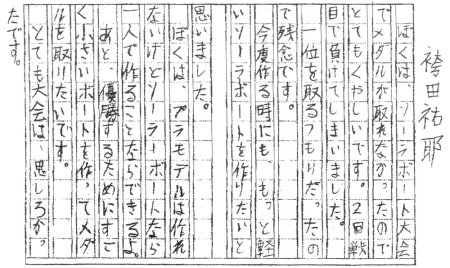 袴田祐耶
ぼくは、ソーラーボート大会
でメダルが取れなかったので
とてもくやしいです。2回戦
目で負けてしまいました。
一位を取るつもりだったの
で残念です。
今度作る時にも、もっと軽
いソーラーボートを作りたいと
思いました。
ぼくは、プラモデルは作れ
ないけどソーラーボートなら
一人で作ることならできるよ。
あと、優勝するためにすご
く小さいボートを作ってメダ
ルを取りたいです。
とても大会は、思しろかっ
たです。